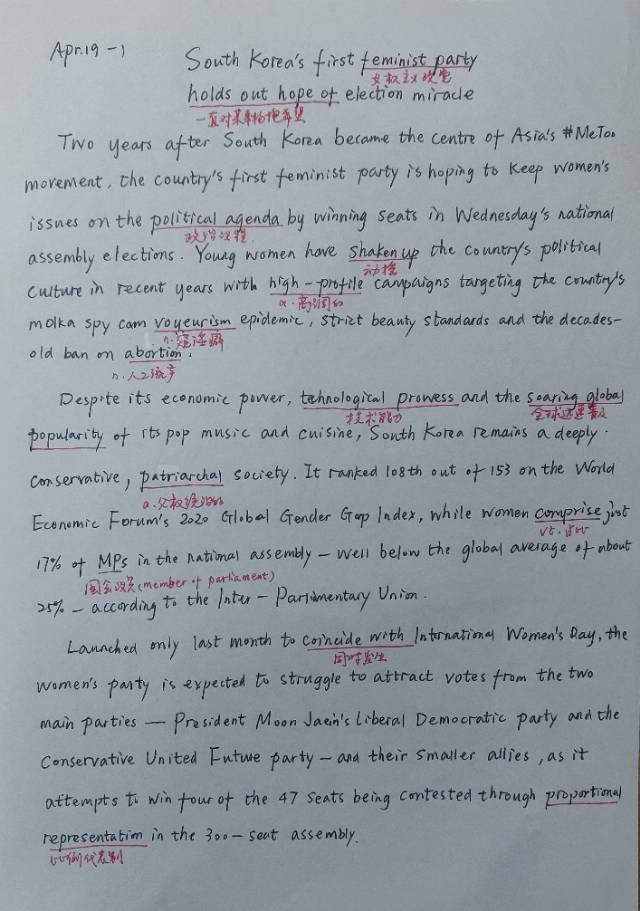 Apr.19-1
South Korea's first feminist party
女权主义政党
holds out hope of election miracle
一直对某事物抱希望
Two years after South Korea became the centre of Asia's #MeToo
movement, the country's first feminist party is hoping to keep women's
issues on the political agenda by winning seats in Wednesday's national
政治议程
assembly elections. Young women have shaken up the country's political
动摇
culture in recent years with high-profile campaigns targeting the country's
a.高调的
molka spy cam voyeurism epidemic, strict beauty standards and the decades-
n.窥淫癖
old ban on abortion.
n.人工流产
Despite its economic power, tehnological prowess and the soaring global
技术能力
popularity of its pop music and cuisine, South Korea remains a deeply
conservative, patriarchal society. It ranked 108th out of 153 on the World
a.父权统治的
Economic Forum's 2020 Global Gender Gap Index, while women comprise just
vt.
17% of MPs in the national assembly — well below the global average of about
国会议员(member of parliament)
25% — according to the Inter-Parlimentary Union.
Launched only last month to coincide with International Women's Day, the
同时发生
women's party is expected to struggle to attract votes from the two
main parties — President Moon Jaein's Liberal Democratic party and the
Conservative United Future party — and their smaller allies, as it
attempts to win four of the 47 seats being contested through proportional
representation in the 300-seat assembly.
比例代表制